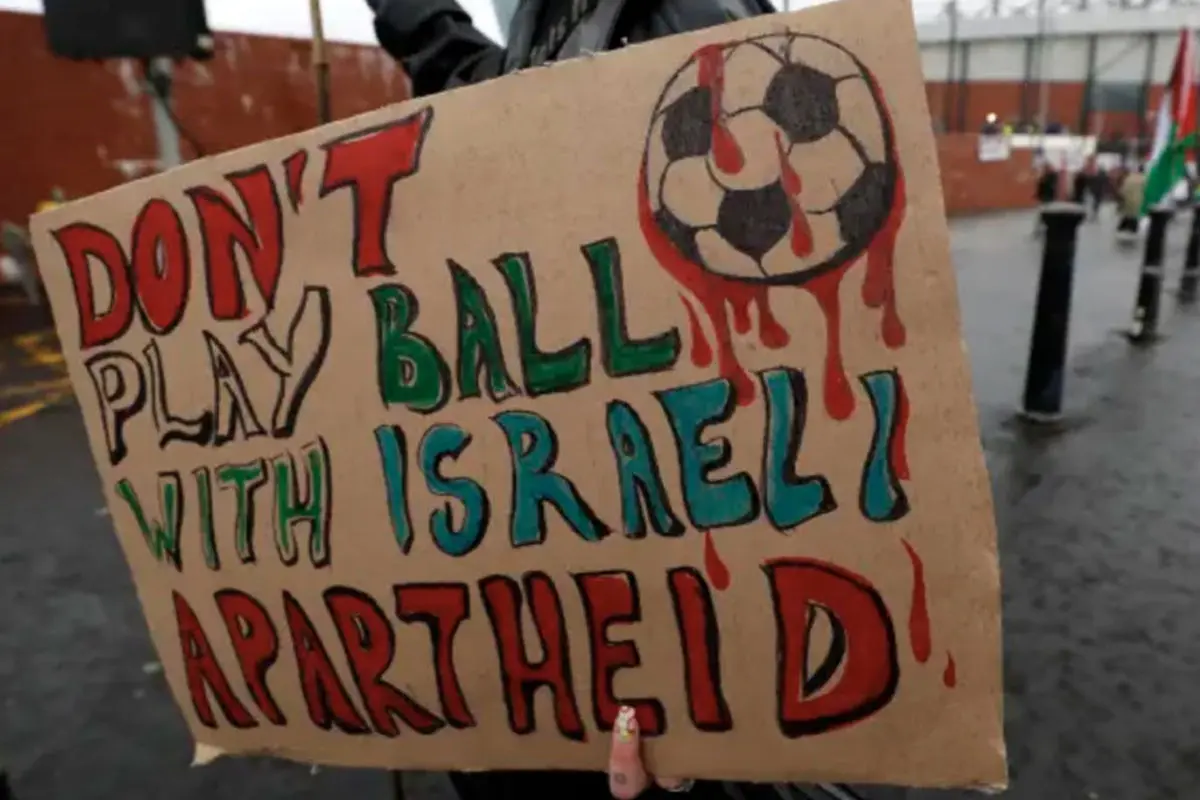 DON'T
PLAY BALL
WITH ISRAELI
APARTHEID